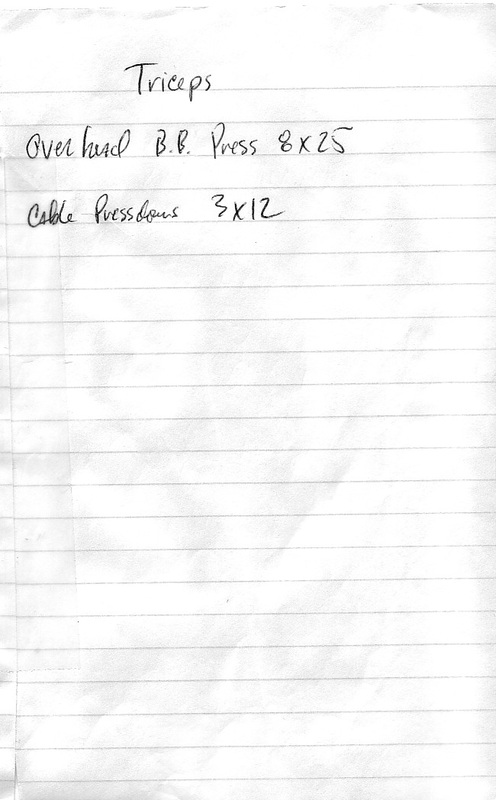 Triceps
Overhead B.B. Press 8x25
Cable Pressdowns 3x12